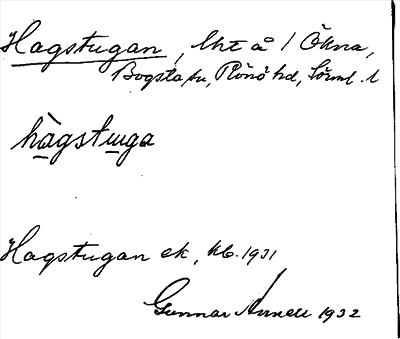 Hagstugan, lht å 1 Ökna,
Bogsta sn, Rönö hd, Sörml. l
hagstuga
Hagstugan ek, kb. 1931
Gunnar Arnell 1932